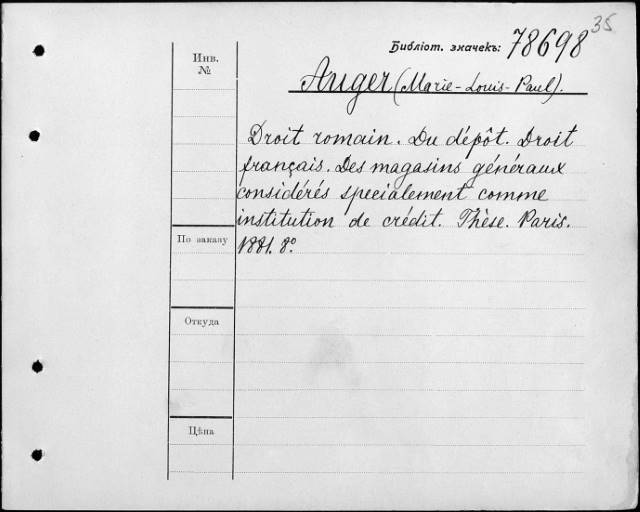 35
Библіот. значекъ: 78698
Инв.
№
Auger (Marie-Louis-Paul).
Droit romain. Du dépôt. Droit
français. Des magasins généraux
considérés specialement comme
institution de crédit. Thèse. Paris.
1881. 8º
По заказу
Откуда
Цѣна